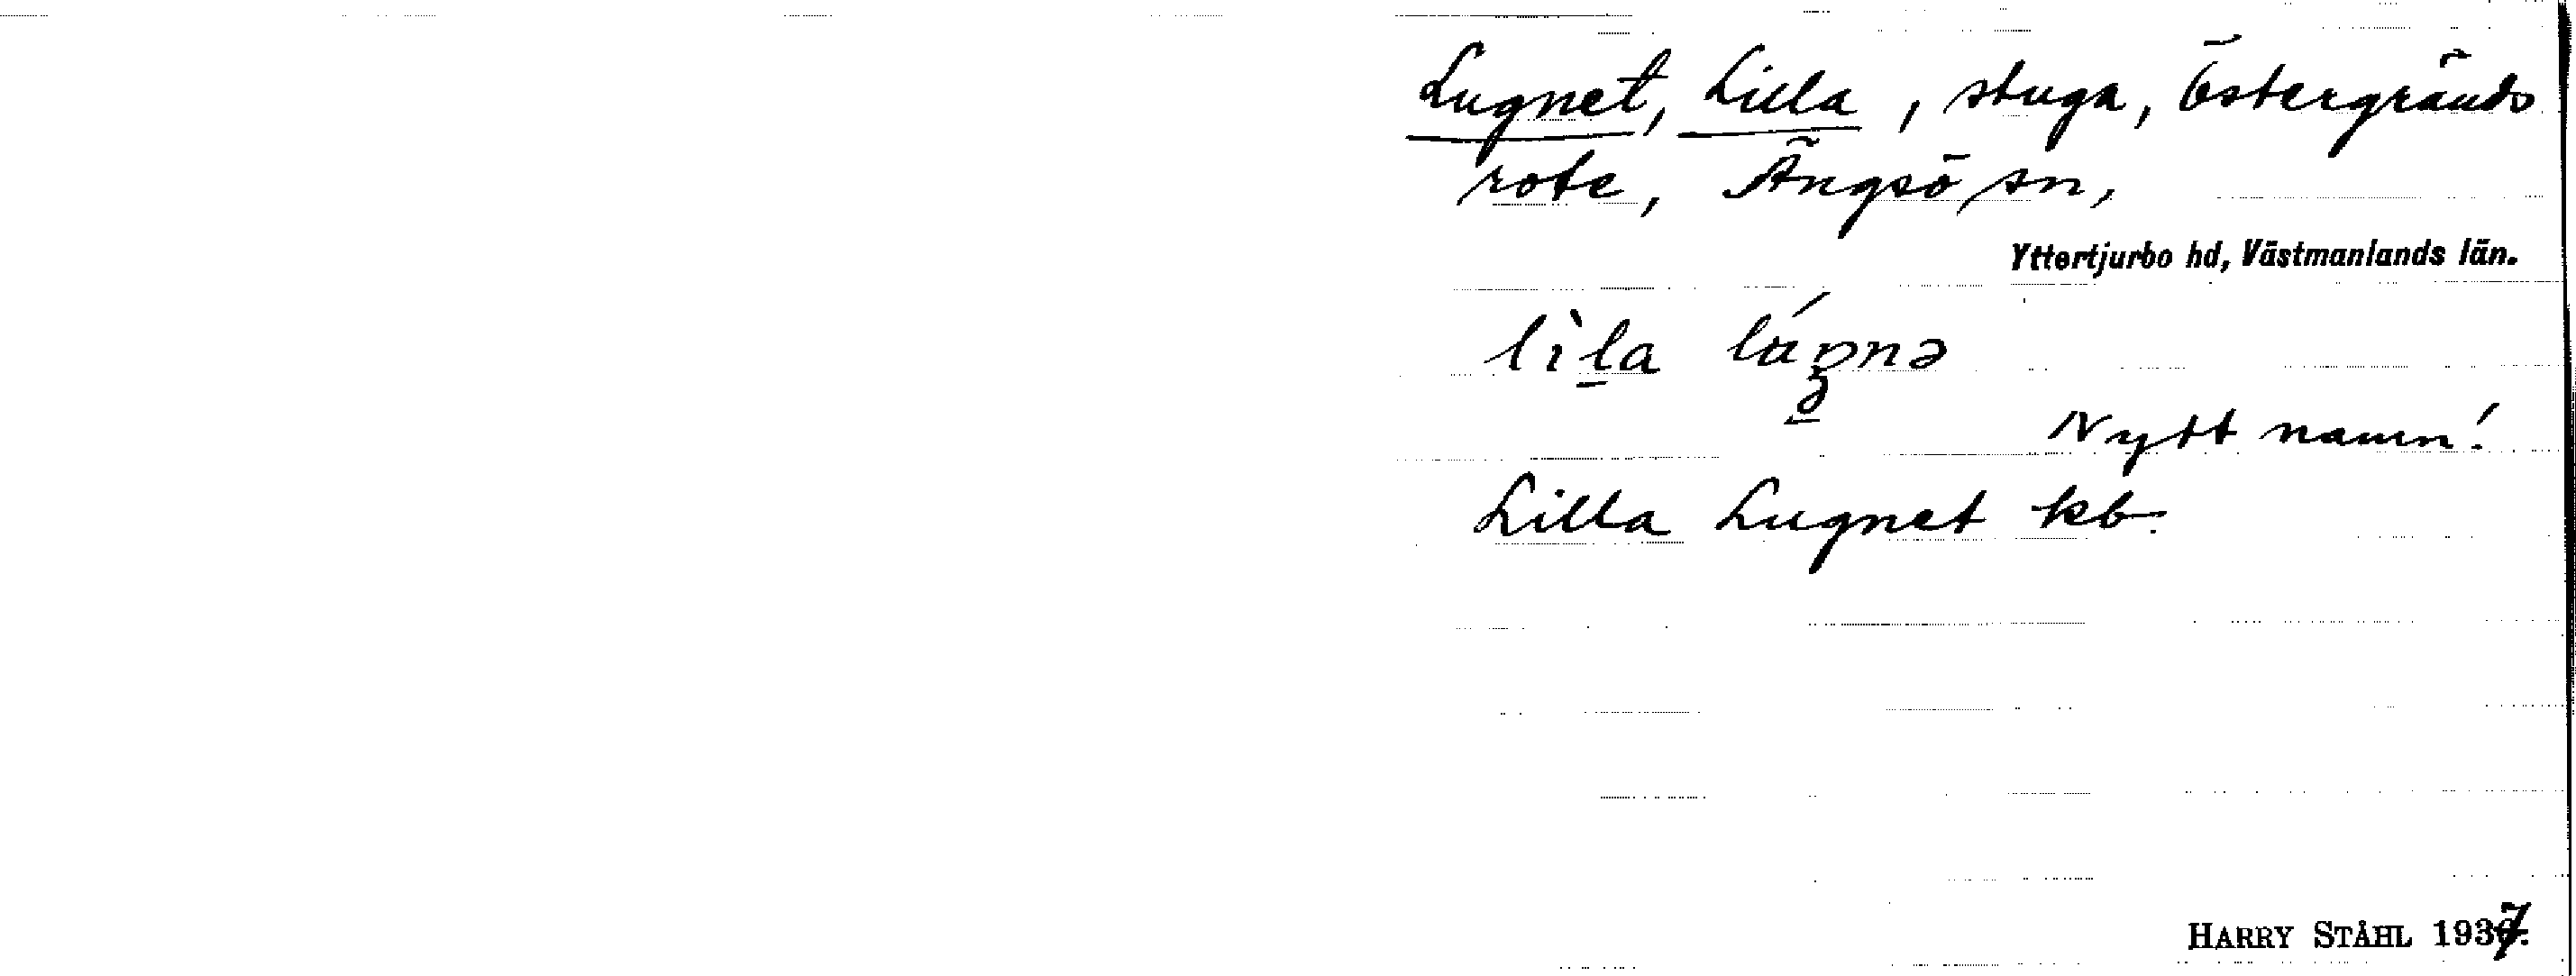 Lugnet, Lilla, stuga, Östergränds
rote, Ängsö sn,
Yttertjurbo hd, Västmanlands län.
lìla
Nytt namn!
Lilla Lugnet kb.
HARRY STÅHL 1937.